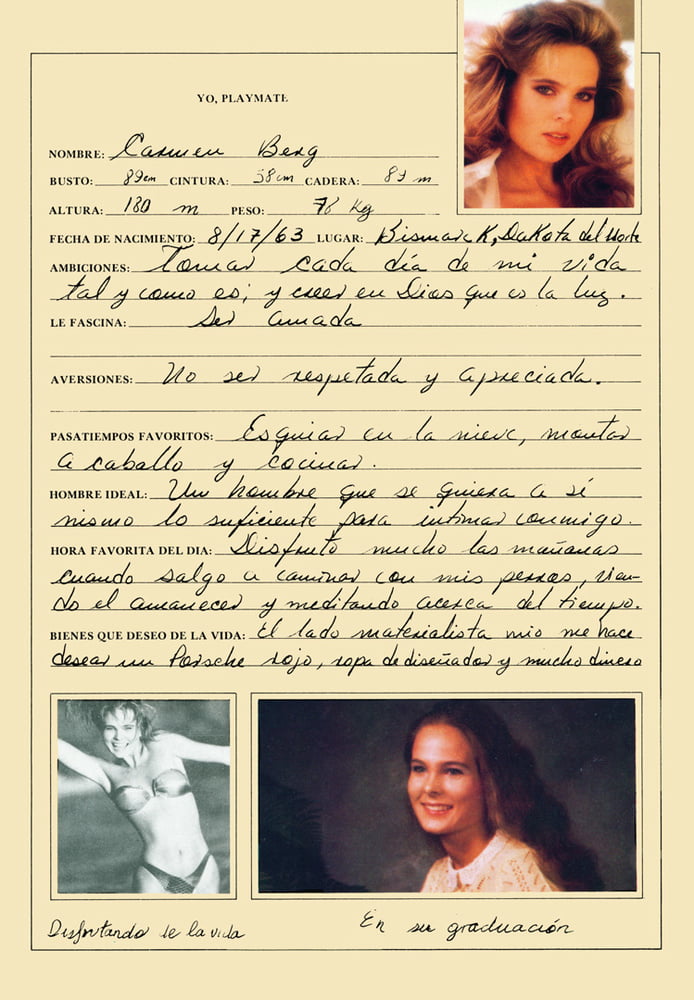 YO, PLAYMATE
NOMBRE: Carmen Berg
BUSTO: 89cm CINTURA: 58cm CADERA: 89 m
ALTURA: 180 m PESO: Kg
FECHA DE NACIMIENTO: 8/17/63 LUGAR: Bismarck, Dakota del Norte
AMBICIONES: Tomar cada día de mi vida
tal y como es; y creer en Dios que es la luz.
LE FASCINA: Ser amada
AVERSIONES: No ser respetada y apreciada.
PASATIEMPOS FAVORITOS: Esquiar en la nieve, montar
a caballo y cocinar.
HOMBRE IDEAL: Un hombre que se quiera a sí
mismo lo suficiente para intimar conmigo.
HORA FAVORITA DEL DIA: Disfruto mucho las mañanas
cuando salgo a caminar con mis perros, vien-
do el amanecer y meditando acerca del tiempo.
BIENES QUE DESEO DE LA VIDA: El lado materialista mio me hace
desear un Porsche rojo, ropa de diseñador y mucho dinero
Disfrutando de la vida
En su graduación